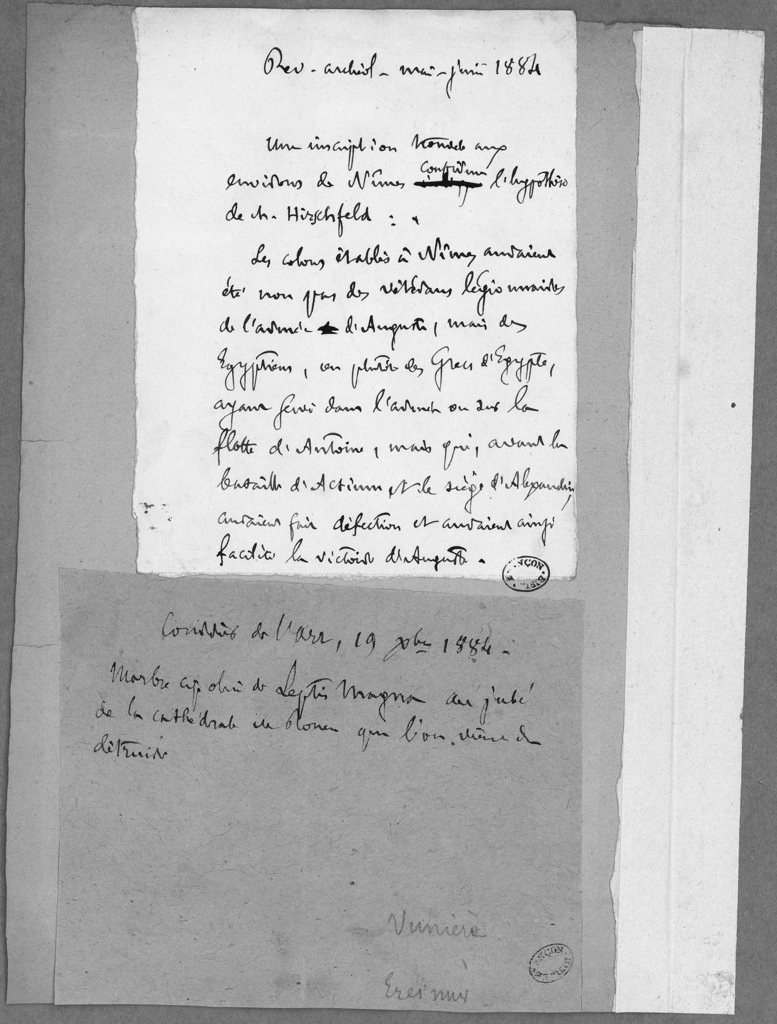 Rev. archéol. mai-juin 1884
Une inscription trouvée aux
confirme
environs de Nîmes l'hypothèse
de M. Hirschfeld :
Les colons établis à Nîmes auraient
été non pas des vétérans légionnaires
de l'armée d'Auguste, mais des
Egyptiens, ou plutôt des Grecs d'Egypte,
ayant servi dans l'armée ou sur la
flotte d'Antoine, mais qui, avant la
bataille d'Actium et le siège d'Alexandrie,
auraient fait défection et auraient ainsi
facilité la victoire d'Auguste.
Courrier de l'Art, 19 xbre 1884.
Marbre cipolin de Leptis Magna au jubé
de la cathédrale de Rouen que l'on vient de
détruire